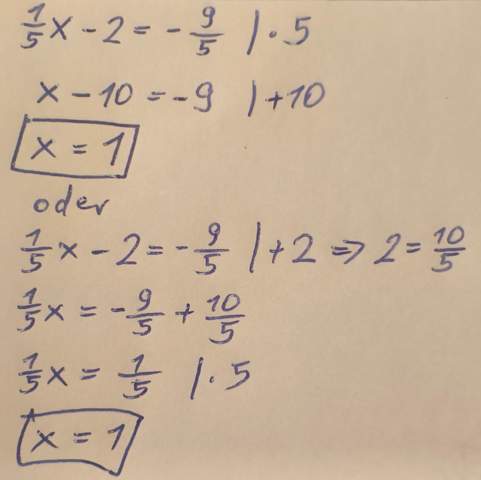 1/5 x - 2 = - 9/5 | · 5
x - 10 = - 9 | + 10
x = 1
oder
1/5 x - 2 = - 9/5 | + 2 ⇒ 2 = 10/5
1/5 x = - 9/5 + 10/5
1/5 x = 1/5 | · 5
x = 1